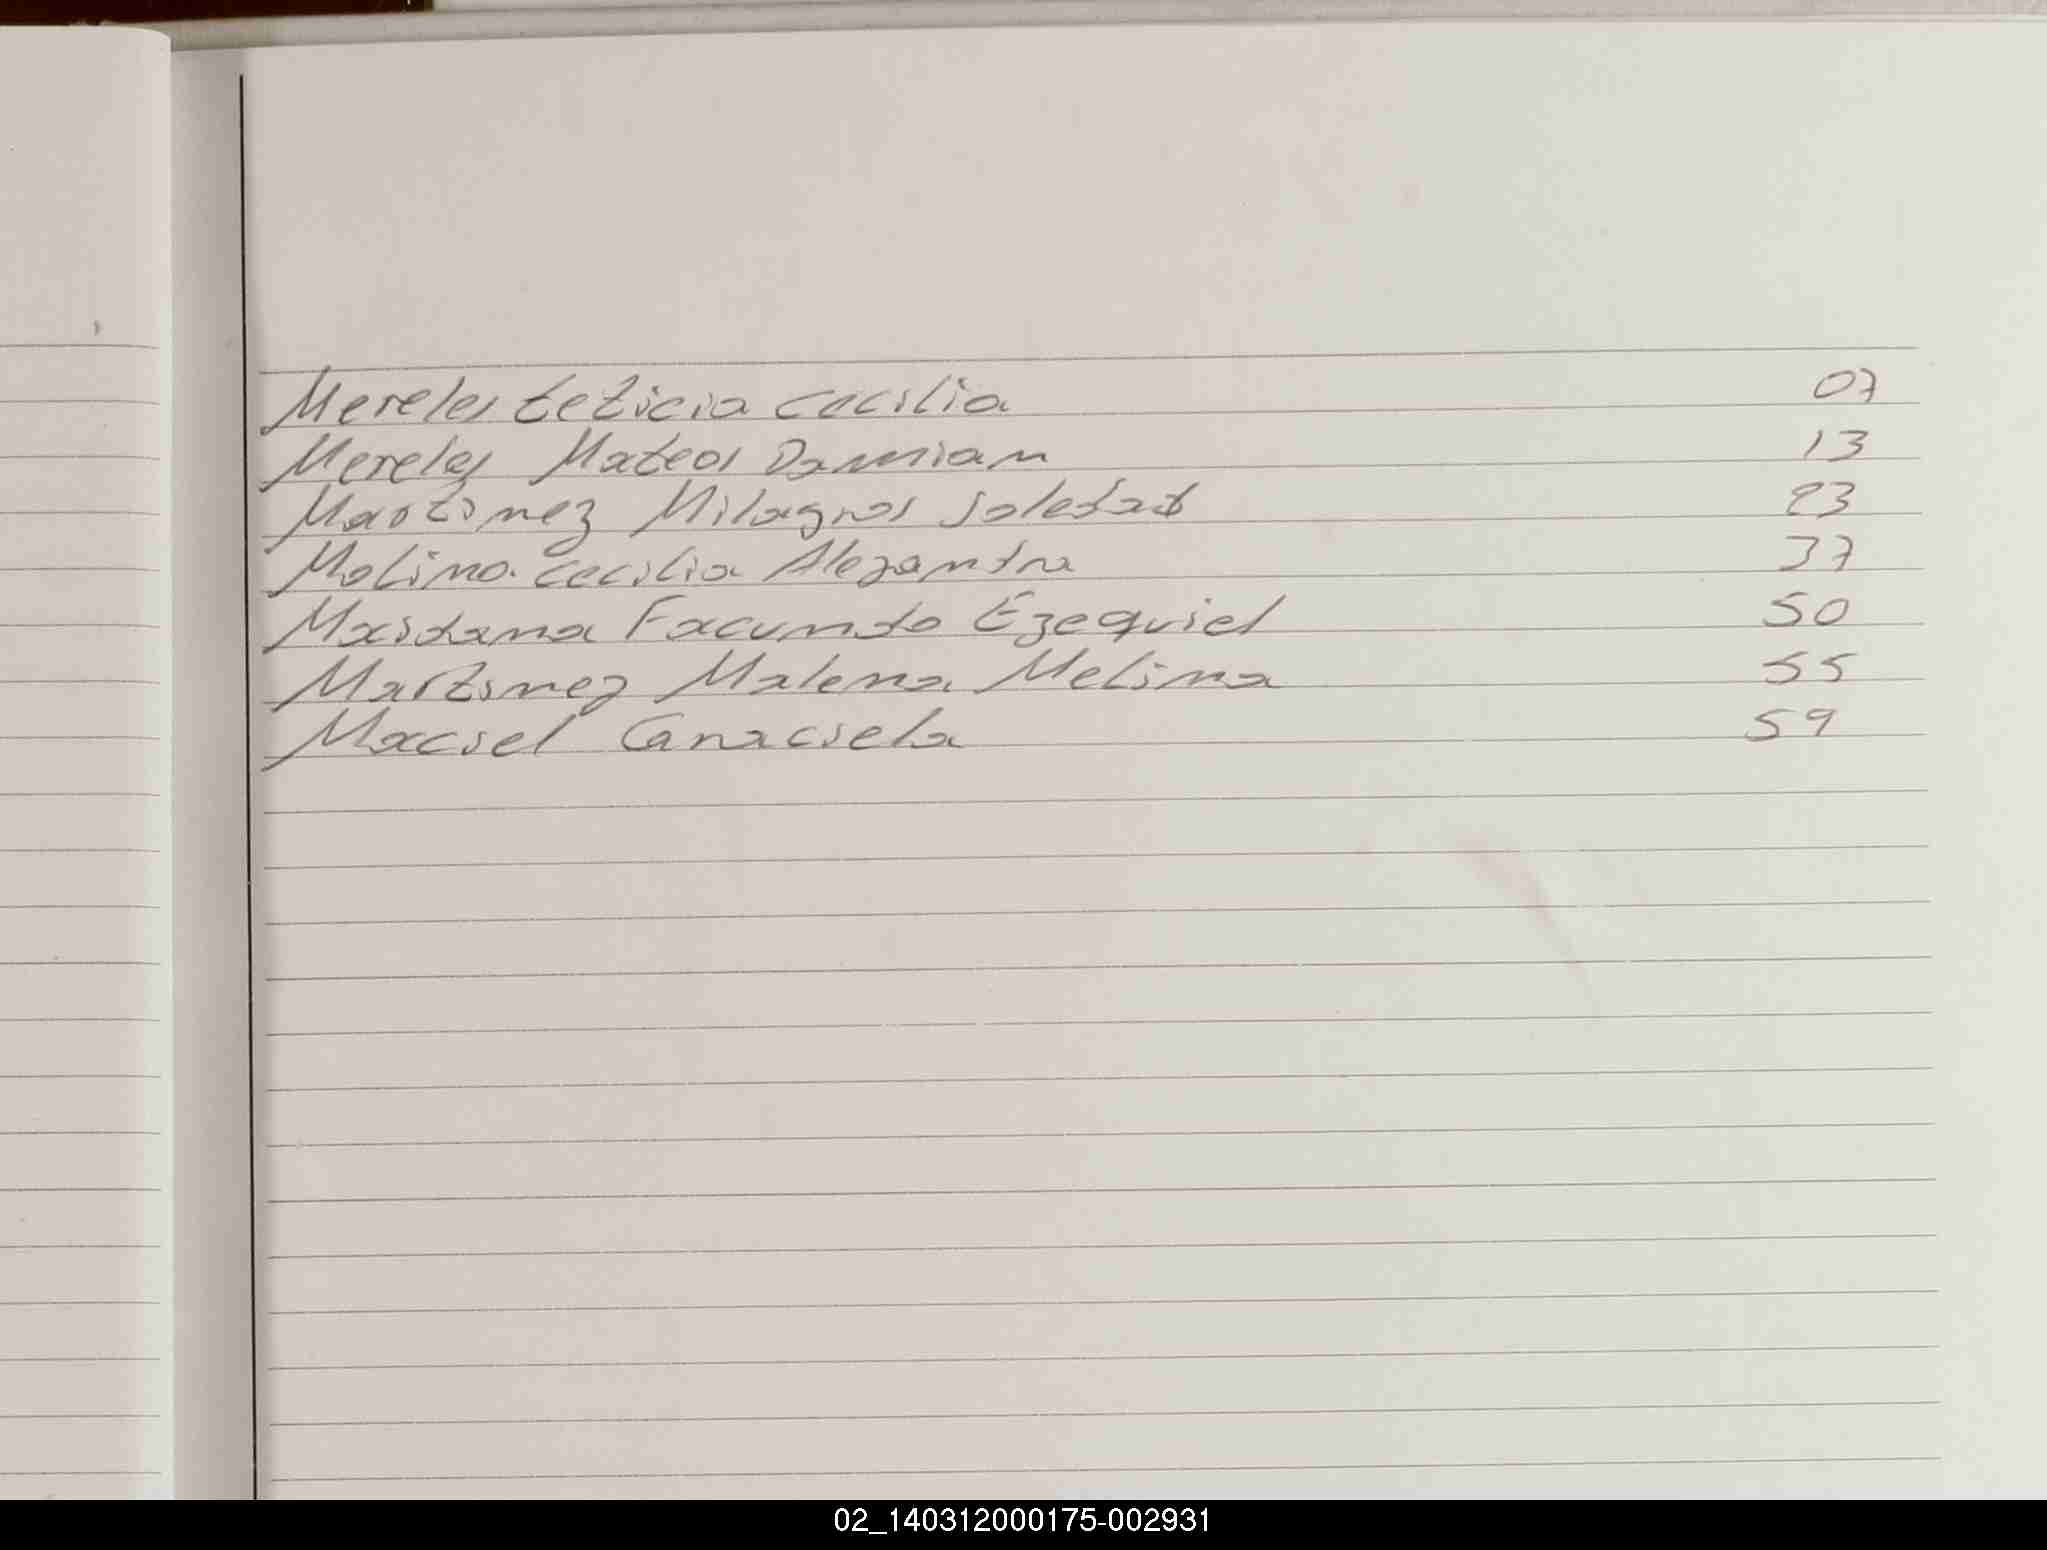 Mereles Leticia Cecilia 07
Mereles Mateos Damian 13
Martinez Milagros Soledad 23
Molina Cecilia Alejandra 37
Maidana Facundo Ezequiel 50
Martinez Malena Melina 55
Maciel 59
02_140312000175-002931